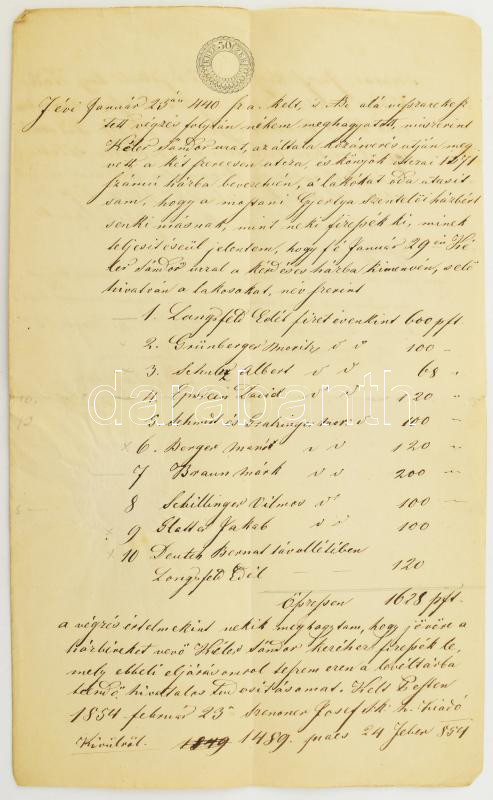 30 KRE
F évi Január 25 én 440 sz a. kelt, s
tett végzés folytán nékem meghagyatott, miszerint
Kéler Sándor urat, az általa közárverés útján meg
vett a két utcza, és könyök utczai 1571
számú házba bevezetvén, a lakókat oda utasít
sam, hogy a mostani Gyertya Szentelői házbért
senki másnak, mint neki fizessék ki, minek
teljesítéseül jelentem, hogy f é Január 29 én Ké
ler Sándor urral a kérdéses házba kimenvén, s elő
hivatván a lakosokat, név szerint
1. Langsfeld Edél fizet évenkint 600 pft.
2. Grünberger Moritz v v 100 -
3. Albert v v 68 "
4. David v v 120
5. Schmid és v 100 -
6. Berger v v 120 "
7 Braun Márk v v 200 -
8 Schillinger Vilmos v v 100 -
9 Jakab v v 100
10 Deutch Bernat távollétében
Langsfeld Edél 120
Öszvesen 1628 pft.
a végzés értelmekint nekik meghagytam, hogy jövőre a
házbéreket vevő Kéler Sándor kezéhez fizessék le,
mely ebbeli eljárásomrol teszem ezen a levéltárba
teendő hivatalos tudositásomat. Kelt Pesten
1854 február 23 Josef kiadó
Kivülről. 1849 1489. 24 Feber 854
darabanth